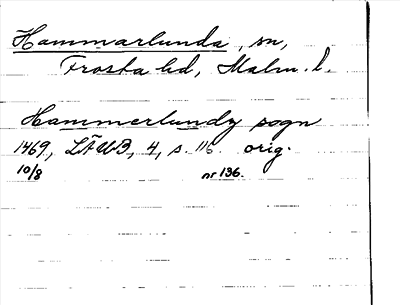 Hammarlunda, sn,
Frosta hd, Malm. l.
Hammerlundz sogn
1469, LÄUB, 4, s. 116. orig.
10/8 nr 136.